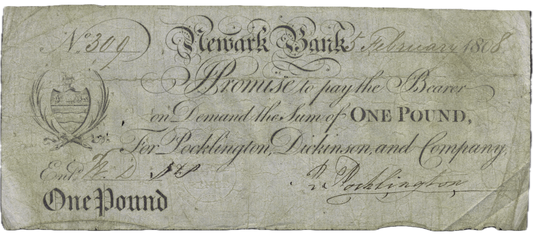 No. 309 Newark Bank 5 February 1808
I Promise to pay the Bearer
on Demand the Sum of ONE POUND,
For Pocklington, Dickinson, and Company
Entd W. D
R Pocklington
One Pound